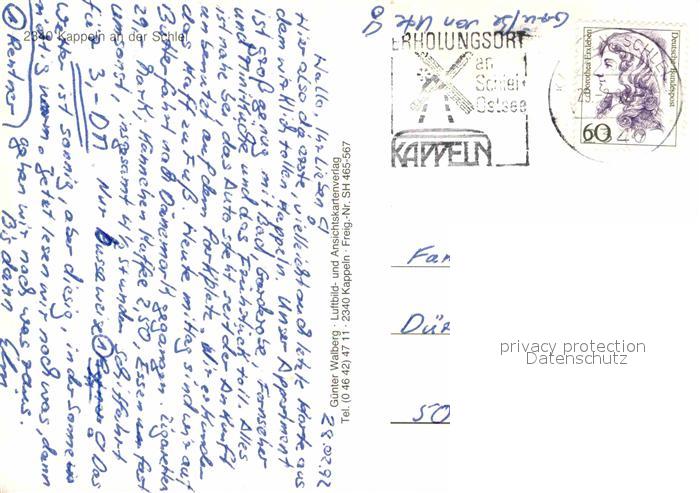 2340 Kappeln an der Schlei
28.02.92
Hallo, Ihr Lieben!
Hier also da erste, vielleicht und letzte Karte aus
dem wirklich tollen Kappeln. Unser Appartment
ist groß genug mit Bad, Garderobe, Fernseher
und Minihütte und das Frühstück toll. Alles
ist nahe bei, das Auto steht seit der Ankunft
unbenutzt auf dem Parkplatz. Wir erkunden
das Kaff zu Fuß. Heute mittag sind wir auf
Butterfahrt nach Dänemark gegangen. Zigaretten
29,- Mark, Kännchen Kaffee 2,50, Essen fast
umsonst, insgesamt 4 1/2 Stunden Schiffahrt
für 3,- DM. Nur Busseweise Das
Wetter ist sonnig, aber diesig, in der Sonne
ist warm. Jetzt lesen wir noch was, dann
gehen wir noch was raus.
Bis dann
Rentner
Grüße von Ute
Günter Walberg · Luftbild- und Ansichtskartenverlag
Tel. (0 46 42) 47 11 · 2340 Kappeln · Freig.-Nr. SH 465-567
ERHOLUNGSORT
an
Schlei +
Ostsee
KAPPELN
SCHLEI
2340
Dorothea Erxleben
Deutsche Bundespost
60
Fan
Dü
50
privacy protection
Datenschutz